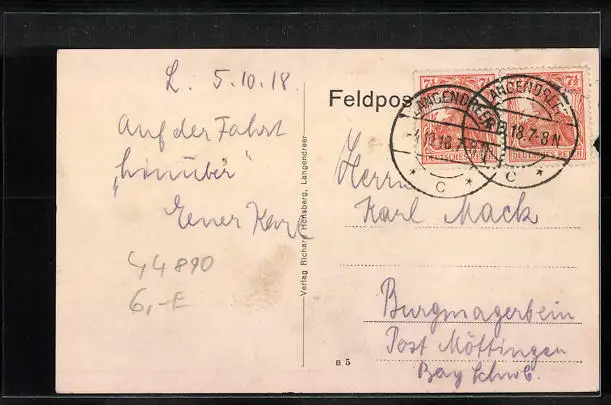 L. 5.10.18
Auf der Fahrt
„hinüber"
Euer Karl
44890
6,-E
Verlag Richard Honsberg, Langendreer
B 5
Feldpos
7½ 7½
LANGENDREER
18.7-8N
* C *
LANGENDREER
18.7-8N
* C *
DEUTSCHES REICH
Herrn
Karl Mack
Burgmagerbein
Post Möttingen
Bay Schwb.